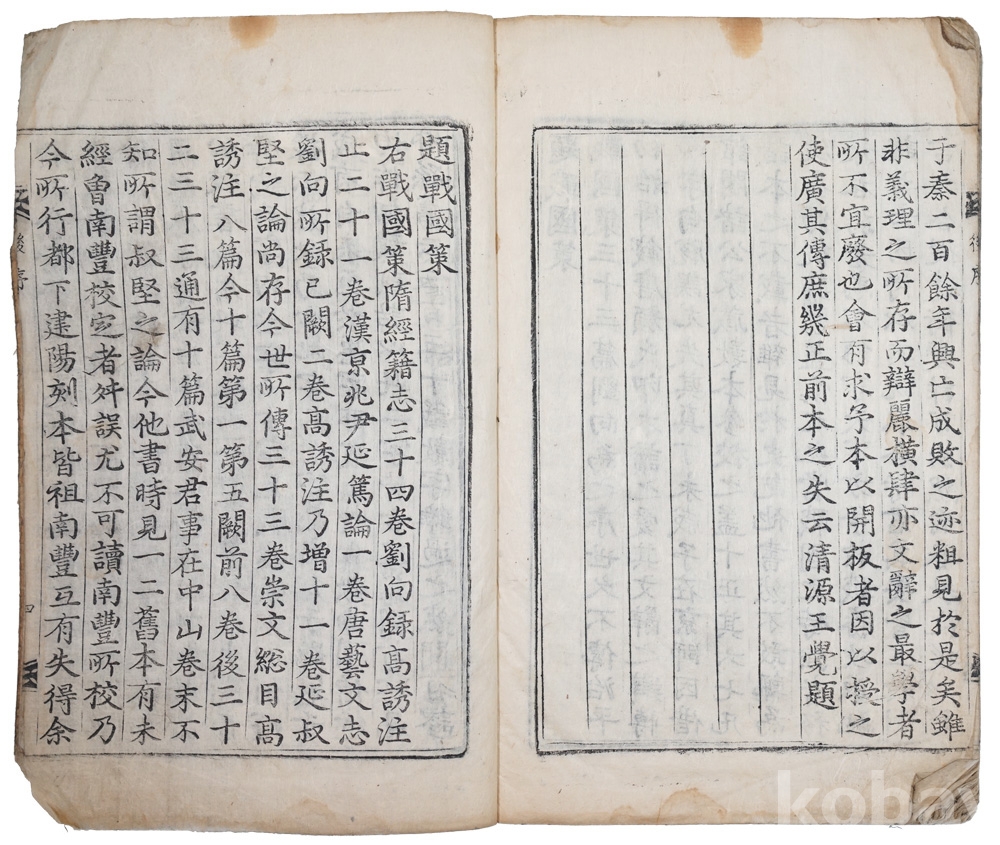 于秦二百餘年興亡成敗之迹粗見於是矣雖
非義理之所存而辯麗橫肆亦文辭之最學者
所不宜廢也會有求予本以開板者因以授之
使廣其傳庶幾正前本之失云清源王覺題
題戰國策
右戰國策隋經籍志三十四卷劉向録高誘注
止二十一卷漢京兆尹延篤論一卷唐藝文志
劉向所録已闕二卷高誘注乃増十一卷延叔
堅之論尚存今世所傳三十三卷崇文総目高
誘注八篇今十篇第一第五闕前八卷後三十
二三十三通有十篇武安君事在中山卷末不
知所謂叔堅之論今他書時見一二舊本有未
經魯南豐校定者舛誤尤不可讀南豐所校乃
今所行都下建陽刻本皆祖南豐互有失得余
後序
四